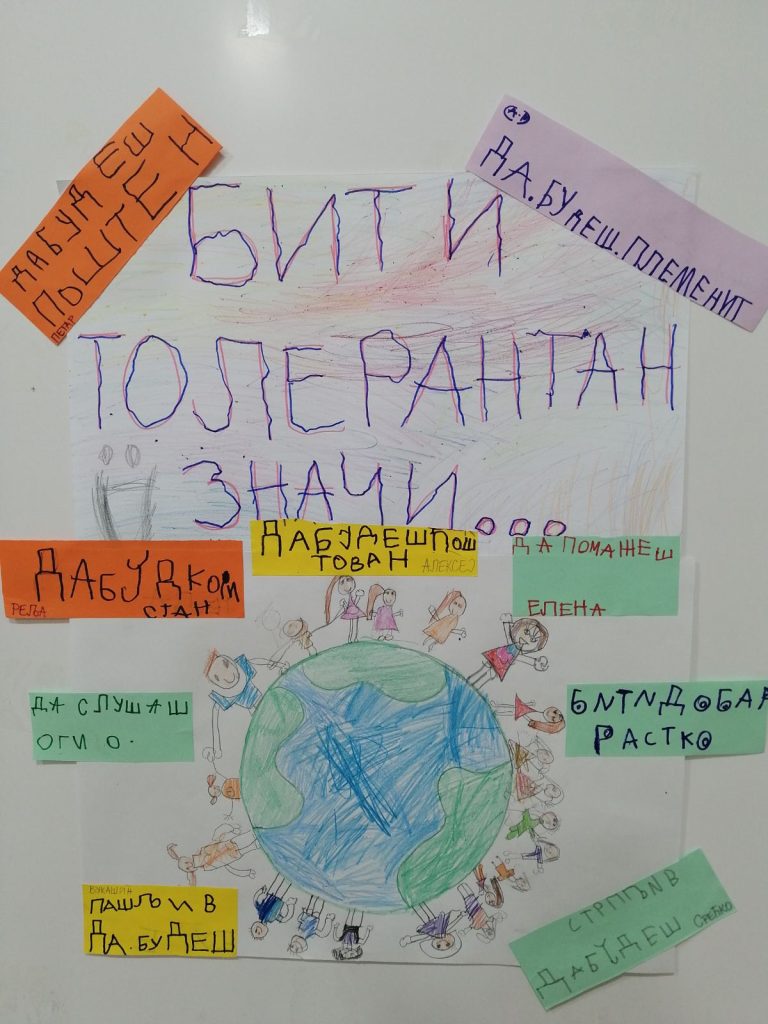 ДАБУДЕШ
ПОШТЕН
ПЕТАР
А.Р
ДА.БУДЕШ.ПЛЕМЕНИТ
БИТИ
ТОЛЕРАНТАН
ЗНАЧИ...
ДАБУДЕШПОШ
ТОВАН
АЛЕКСЕЈ
ДАБУДКОМ
СТАН
РЕЉА
ДА ПОМАЖЕШ
ЕЛЕНА
ДА СЛУШАШ
ОГИ О.
БИТИДОБАР
РАСТКО
ВУКАШИН
ПАШЉИВ
ДА.БУДЕШ
СТРПЉИВ
ДАБУДЕШ
СРЕЋКО